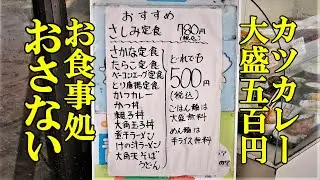 カツカレー
大盛五百円
お食事処
おさない
おすすめ
さしみ定食 780円
(税込)
さかな定食
たらこ定食
ベーコンエッグ定食
とり唐揚定食
カツカレー
かつ丼
親子丼
大角玉子丼
煮汁ラーメン
けの汁ラーメン
大角天そば
うどん
どれでも
500円
(税込)
ごはん類は
大盛無料
めん類は
半ライス無料